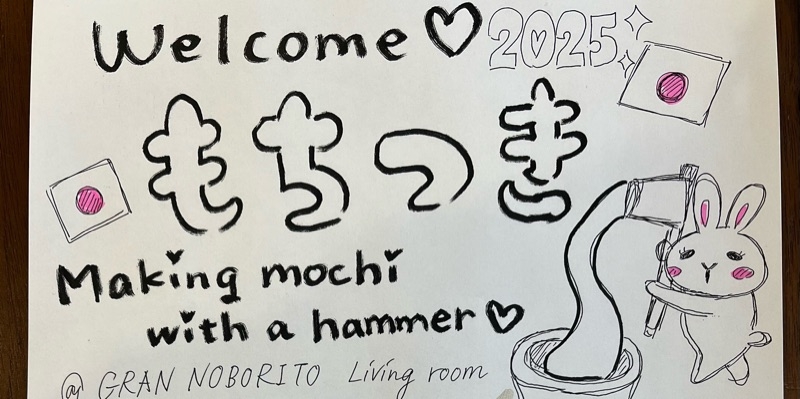 Welcome ♡ 2025
もちつき
Making mochi
with a hammer ♡
@ GRAN NOBORITO Living room